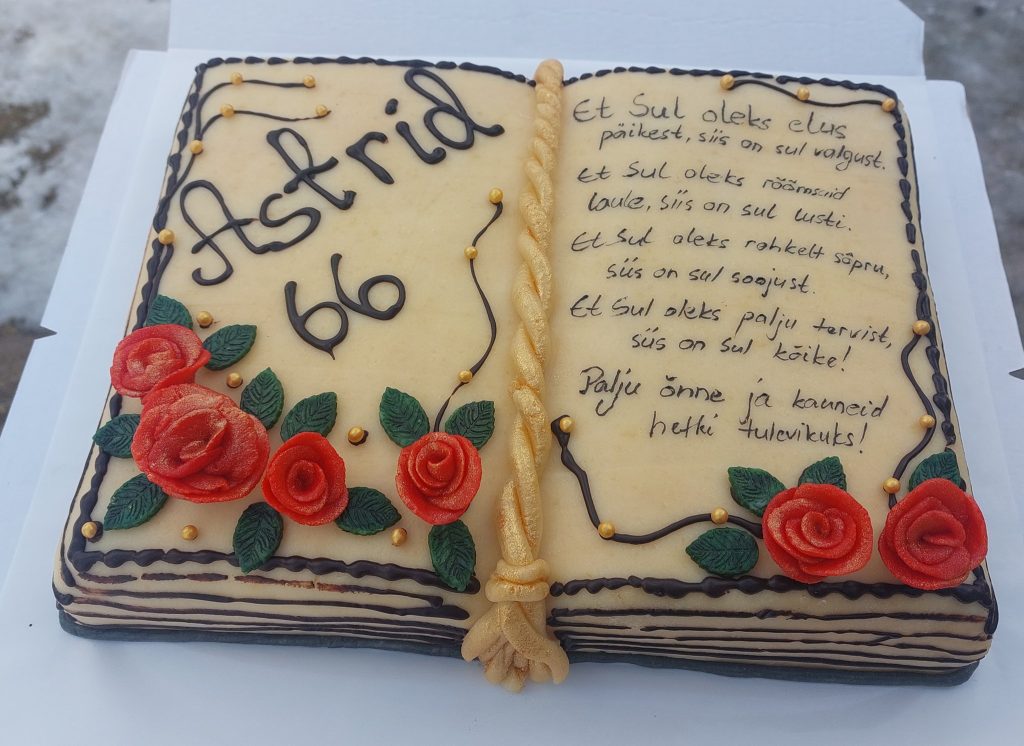 Astrid
66
Et Sul oleks elus
päikest, siis on sul valgust.
Et Sul oleks rõõmsaid
laule, siis on sul lusti.
Et Sul oleks rohkelt sõpru,
siis on sul soojust.
Et Sul oleks palju tervist,
siis on sul kõike!
Palju õnne ja kauneid
hetki tulevikuks!